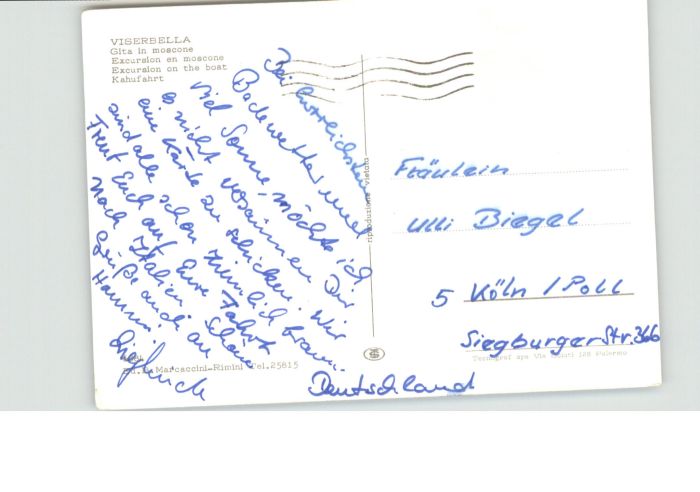 VISERBELLA
Gita in moscone
Excursion en moscone
Excursion on the boat
Kahufahrt
Bei herrlichstem
Badewetter und
viel Sonne, möchte ich
es nicht versäumen Dir
eine Karte zu schicken. Wir
sind alle schon ziemlich braun.
Freut Euch auf Eure Fahrt
nach Italien. Schöne
Grüße auch an
Mammi
riproduzione vietata
Fräulein
Ulli Biegel
5 Köln / Poll
Siegburger Str. 366
Deutschland
Marcaccini-Rimini Tel. 25815